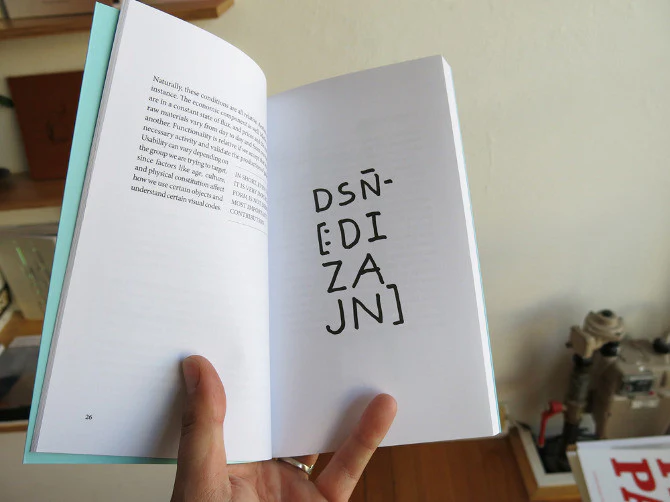 Naturally, these conditions are all relative
instance. The economic component as well
are in a constant state of flux, and prices
raw materials vary from day to day and from
another. Functionality is relative if we accept
necessary activity and validate the
Usability can vary depending on
the group we are trying to target,
since factors like age, culture,
and physical constitution affect
how we use certain objects and
understand certain visual codes
IN SHORT,
IT IS VERY
FORM IS NOT
MOST IMPORTANT
CONTRIBUTING
26
DSÑ-
[:DI
ZA
JN]